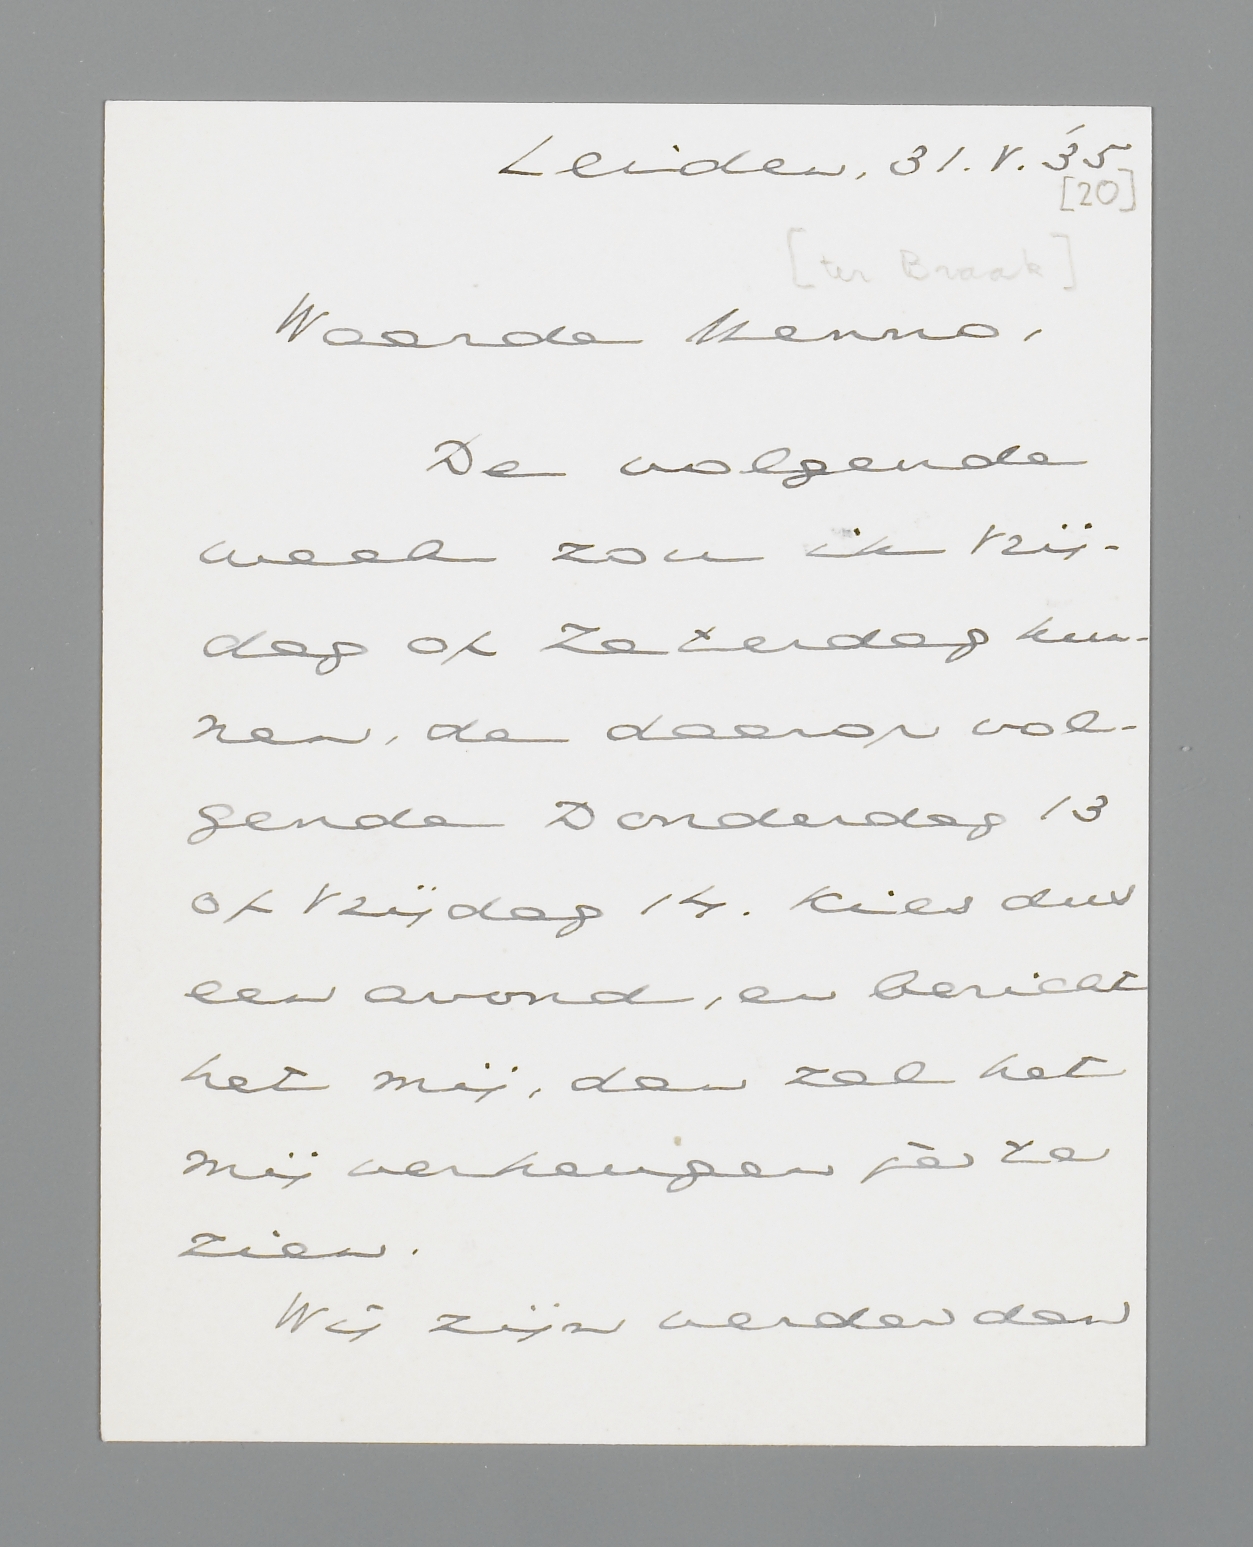 Leiden, 31.V.'35
[20]
[ter Braak]
Waarde Menno,
De volgende
week zou ik Vrij-
dag of Zaterdag kun-
nen, de daarop vol-
gende Donderdag 13
of Vrijdag 14. Kies dus
een avond, en bericht
het mij, dan zal het
mij verheugen je te
zien.
Wij zijn verder dan